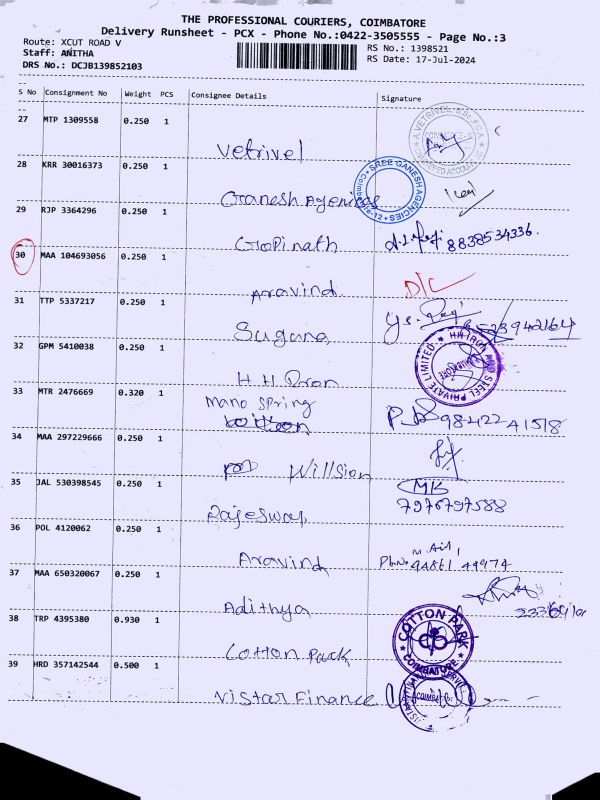 THE PROFESSIONAL COURIERS, COIMBATORE
Delivery Runsheet - PCX - Phone No.:0422-3505555 - Page No.:3
Route: XCUT ROAD V
RS No.: 1398521
Staff: ANITHA
RS Date: 17-Jul-2024
DRS No.: DCJB139852103
S No Consignment No Weight PCS Consignee Details Signature
27 MTP 1309558 0.250 1
Vetrivel
28 KRR 30016373 0.250 1
SREE GANESH AGENCIES
Ganesh Agenices
29 RJP 3364296 0.250 1
GoPinath 8838534336.
30 MAA 104693056 0.250 1
Aravind D/C
31 TTP 5337217 0.250 1
Suguna
32 GPM 5410038 0.250 1
H.H.Iron
33 MTR 2476669 0.320 1
Mano Spring
98422 41518
34 MAA 297229666 0.250 1
Willsion
35 JAL 530398545 0.250 1
MK
7976797588
Rajeswari
36 POL 4120062 0.250 1
Aravind Ph.No: 94861 49974
37 MAA 650320067 0.250 1
Adithya
38 TRP 4395380 0.930 1
COTTON PARK
COIMBATORE
Cotton Park
39 HRD 357142544 0.500 1
Vistar Finance